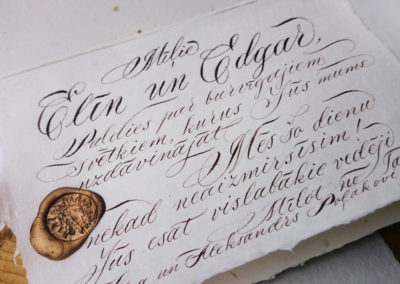 Mīļie
Elīn un Edgar,
Paldies par burvīgajiem
svētkiem, kurus Jūs mums
uzdāvinājāt. Mēs šo dienu
nekad neaizmirsīsim!
Jūs esat vislabākie vedēji
Mīlot, no
un Aleksandrs Poļakovi